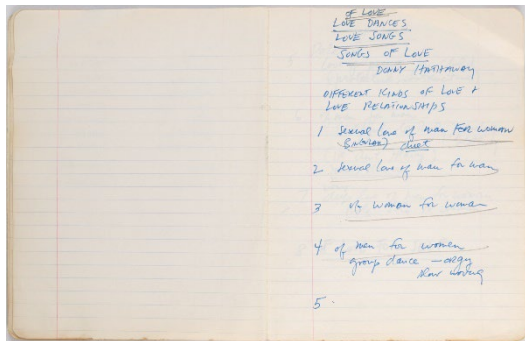 OF LOVE
LOVE DANCES
LOVE SONGS
SONGS OF LOVE
DONNY HATHAWAY
DIFFERENT KINDS OF LOVE +
LOVE RELATIONSHIPS
1 Sexual love of man FOR woman
(SINGULAR) duet
2 Sexual love of man for man
3 of woman for woman
4 of men for women
group dance — orgy
slow moving
5.